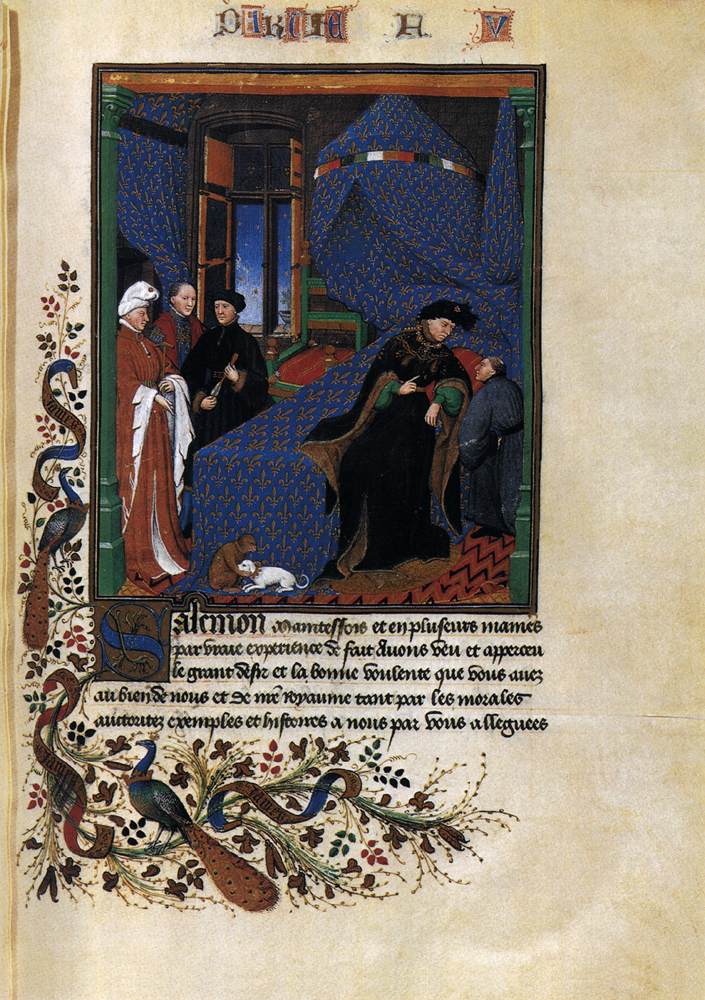 PARTIE A V
Salemon Maintesfois et en pluseurs manieres
par vraie experience de fait avons veu et apperceu
le grant desir et la bonne voulente que vous avez
au bien de nous et de nre royaume tant par les morales
auctoritez exemples et histoires a nous par vous alleguees